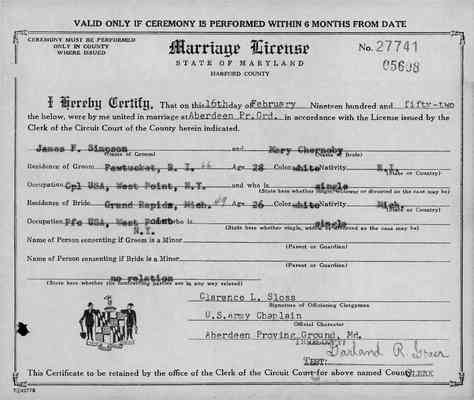 VALID ONLY IF CEREMONY IS PERFORMED WITHIN 6 MONTHS FROM DATE
CEREMONY MUST BE PERFORMED
ONLY IN COUNTY
WHERE ISSUED
Marriage License
STATE OF MARYLAND
HARFORD COUNTY
No. 27741
05698
I Hereby Certify, That on this 16th day of February Nineteen hundred and fifty-two
the below, were by me united in marriage at Aberdeen Pr.Ord. in accordance with the License issued by the
Clerk of the Circuit Court of the County herein indicated.
James F. Simpson and Mary Chernoby
(Name of Groom) (Name of Bride)
Residence of Groom Pawtucket, R. I. Age 28 Color white Nativity R.I.
(State or Country)
Occupation Cpl USA, West Point, N.Y. and who is single
(State here whether single, widower or divorced as the case may be)
Residence of Bride Grand Rapids, Mich. 49 Age 26 Color white Nativity Mich.
(State or Country)
Occupation Pfc USA, West Point who is single
N.Y. (State here whether single, widow or divorced as the case may be)
Name of Person consenting if Groom is a Minor
(Parent or Guardian)
Name of Person consenting if Bride is a Minor
(Parent or Guardian)
no relation
(State here whether the contracting parties are in any way related)
Clarence L. Sloss
Signature of Officiating Clergyman
U.S.Army Chaplain
Official Character
Aberdeen Proving Ground, Md.
Garland R
TEST:
This Certificate to be retained by the office of the Clerk of the Circuit Court for above named County CLERK